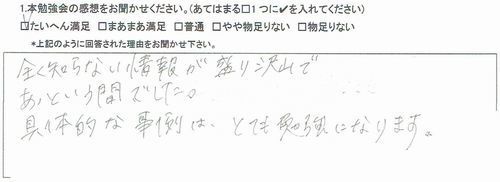 1.本勉強会の感想をお聞かせください。(あてはまる□1つに✔を入れてください)
☑たいへん満足 □まあまあ満足 □普通 □やや物足りない □物足りない
*上記のように回答された理由をお聞かせ下さい。
全く知らない情報が盛り沢山で
あっという間でした。
具体的な事例は、とても勉強になります。